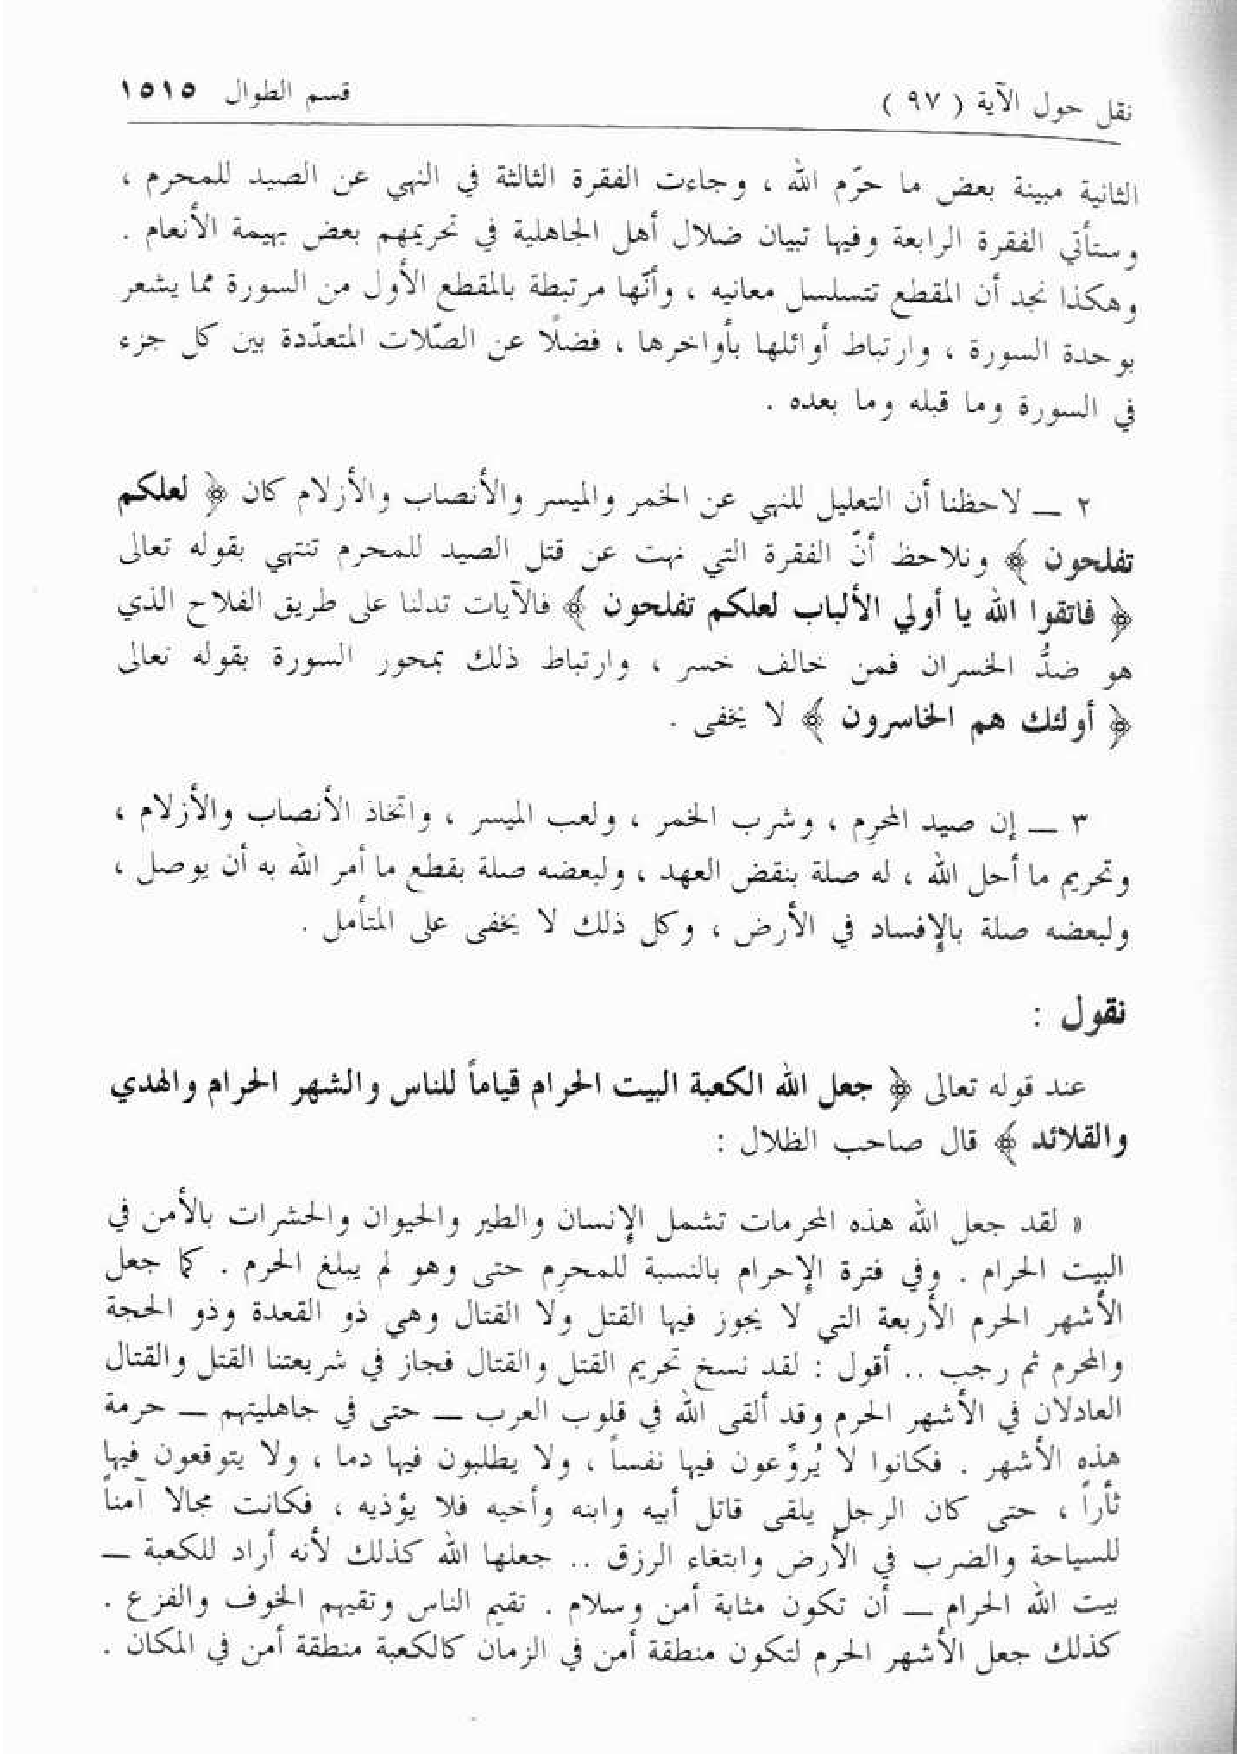 نقل حول الآية ( ٩٧ ) قسم الطوال ١٥١٥
الثانية مبينة بعض ما حرّم الله ، وجاءت الفقرة الثالثة في النهي عن الصيد للمحرم ،
وستأتي الفقرة الرابعة وفيها تبيان ضلال أهل الجاهلية في تحريمهم بعض بهيمة الأنعام .
وهكذا نجد أن المقطع تتسلسل معانيه ، وأنّها مرتبطة بالمقطع الأول من السورة مما يشعر
بوحدة السورة ، وارتباط أوائلها بأواخرها ، فضلًا عن الصّلات المتعدّدة بين كل جزء
في السورة وما قبله وما بعده .
٢ ـــ لاحظنا أن التعليل للنهي عن الخمر والميسر والأنصاب والأزلام كان ﴿ لعلكم
تفلحون ﴾ ونلاحظ أنّ الفقرة التي نهت عن قتل الصيد للمحرم تنتهي بقوله تعالى
﴿ فاتقوا الله يا أولي الألباب لعلكم تفلحون ﴾ فالآيات تدلنا على طريق الفلاح الذي
هو ضدُّ الخسران فمن خالف خسر ، وارتباط ذلك بمحور السورة بقوله تعالى
﴿ أولئك هم الخاسرون ﴾ لا يخفى .
٣ ـــ إن صيد المحرِم ، وشرب الخمر ، ولعب الميسر ، واتخاذ الأنصاب والأزلام ،
وتحريم ما أحل الله ، له صلة بنقض العهد ، ولبعضه صلة بقطع ما أمر الله به أن يوصل ،
ولبعضه صلة بالإفساد في الأرض ، وكل ذلك لا يخفى على المتأمل .
نقول :
عند قوله تعالى ﴿ جعل الله الكعبة البيت الحرام قياماً للناس والشهر الحرام والهدي
والقلائد ﴾ قال صاحب الظلال :
« لقد جعل الله هذه المحرمات تشمل الإنسان والطير والحيوان والحشرات بالأمن في
البيت الحرام . وفي فترة الإحرام بالنسبة للمحرِم حتى وهو لم يبلغ الحرم . كما جعل
الأشهر الحرم الأربعة التي لا يجوز فيها القتل ولا القتال وهي ذو القعدة وذو الحجة
والمحرم ثم رجب .. أقول : لقد نسخ تحريم القتل والقتال فجاز في شريعتنا القتل والقتال
العادلان في الأشهر الحرم وقد ألقى الله في قلوب العرب ـــ حتى في جاهليتهم ـــ حرمة
هذه الأشهر . فكانوا لا يُروِّعون فيها نفساً ، ولا يطلبون فيها دما ، ولا يتوقعون فيها
ثأراً ، حتى كان الرجل يلقى قاتل أبيه وابنه وأخيه فلا يؤذيه ، فكانت مجالا آمناً
للسياحة والضرب في الأرض وابتغاء الرزق .. جعلها الله كذلك لأنه أراد للكعبة ـــ
بيت الله الحرام ـــ أن تكون مثابة أمن وسلام . تقيم الناس وتقيهم الخوف والفزع .
كذلك جعل الأشهر الحرم لتكون منطقة أمن في الزمان كالكعبة منطقة أمن في المكان .